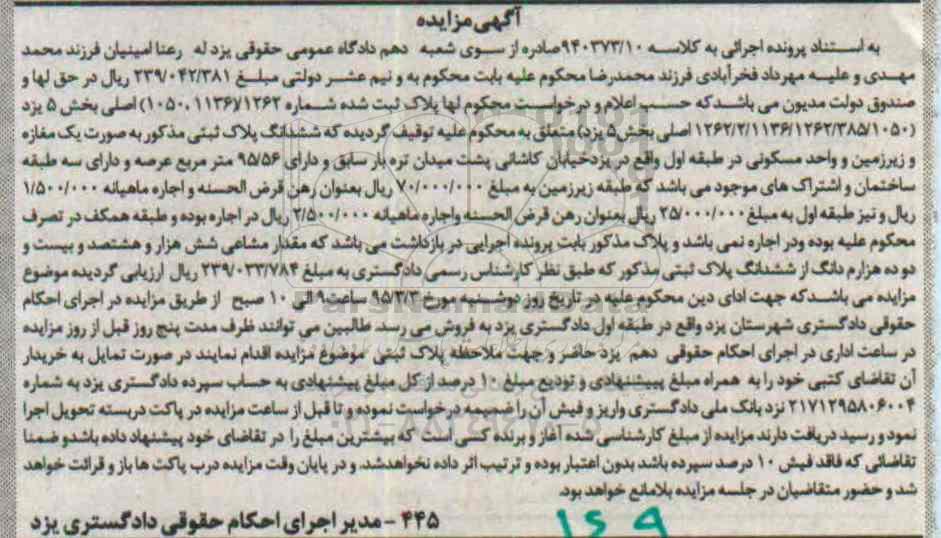 آگهی مزایده
به استناد پرونده اجرائی به کلاسه ۹۴۰۳۷۳/۱۰صادره از سوی شعبه دهم دادگاه عمومی حقوقی یزد له رعنا امینیان فرزند محمد
مهدی و علیه مهرداد فخرآبادی فرزند محمدرضا محکوم علیه بابت محکوم به و نیم عشر دولتی مبلغ ۲۳۹/۰۴۲/۳۸۱ ریال در حق لها و
صندوق دولت مدیون می باشد که حسب اعلام و درخواست محکوم لها پلاک ثبت شده شماره ۱۰۵۰،۱۱۳۶/۱۲۶۲) اصلی بخش ۵ یزد
(۱۲۶۲/۲/۱۱۳۶/۱۲۶۲/۳۸۵/۱۰۵۰ اصلی بخش۵ یزد) متعلق به محکوم علیه توقیف گردیده که ششدانگ پلاک ثبتی مذکور به صورت یک مغازه
و زیرزمین و واحد مسکونی در طبقه اول واقع در یزدخیابان کاشانی پشت میدان تره بار سابق و دارای ۹۵/۵۶ متر مربع عرصه و دارای سه طبقه
ساختمان و اشتراک های موجود می باشد که طبقه زیرزمین به مبلغ ۷۰/۰۰۰/۰۰۰ ریال بعنوان رهن قرض الحسنه و اجاره ماهیانه ۱/۵۰۰/۰۰۰
ریال و نیز طبقه اول به مبلغ ۲۵/۰۰۰/۰۰۰ ریال بعنوان رهن قرض الحسنه واجاره ماهیانه ۲/۵۰۰/۰۰۰ ریال در اجاره بوده و طبقه همکف در تصرف
محکوم علیه بوده ودر اجاره نمی باشد و پلاک مذکور بابت پرونده اجرایی در بازداشت می باشد که مقدار مشاعی شش هزار و هشتصد و بیست و
دو ده هزارم دانگ از ششدانگ پلاک ثبتی مذکور که طبق نظر کارشناس رسمی دادگستری به مبلغ ۲۳۹/۰۳۳/۷۸۴ ریال ارزیابی گردیده موضوع
مزایده می باشد که جهت ادای دین محکوم علیه در تاریخ روز دوشنبه مورخ ۹۵/۳/۳ ساعت ۹ الی ۱۰ صبح از طریق مزایده در اجرای احکام
حقوقی دادگستری شهرستان یزد واقع در طبقه اول دادگستری یزد به فروش می رسد. طالبین می توانند ظرف مدت پنج روز قبل از روز مزایده
در ساعت اداری در اجرای احکام حقوقی دهم یزد حاضر و جهت ملاحظه پلاک ثبتی موضوع مزایده اقدام نمایند در صورت تمایل به خریدار
آن تقاضای کتبی خود را به همراه مبلغ پیشنهادی و تودیع مبلغ ۱۰ درصد از کل مبلغ پیشنهادی به حساب سپرده دادگستری یزد به شماره
۲۱۷۱۲۹۵۸۰۶۰۰۴ نزد بانک ملی دادگستری واریز و فیش آن را ضمیمه درخواست نموده و تا قبل از ساعت مزایده در پاکت دربسته تحویل اجرا
نمود و رسید دریافت دارند مزایده از مبلغ کارشناسی شده آغاز و برنده کسی است که بیشترین مبلغ را در تقاضای خود پیشنهاد داده باشدو ضمنا
تقاضائی که فاقد فیش ۱۰ درصد سپرده باشد بدون اعتبار بوده و ترتیب اثر داده نخواهدشد. و در پایان وقت مزایده درب پاکت ها باز و قرائت خواهد
شد و حضور متقاضیان در جلسه مزایده بلامانع خواهد بود.
۴۴۵ - مدیر اجرای احکام حقوقی دادگستری یزد
۱۶۹
ParsNamadData
۰۲۱-۸۸۳۴۹۶۷۰-۵